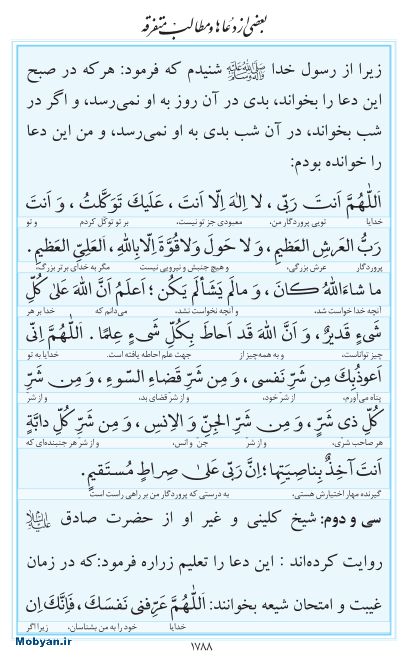 بعضی از دعاها و مطالب متفرقه
زیرا از رسول خدا ﷺ شنیدم که فرمود: هرکه در صبح
این دعا را بخواند، بدی در آن روز به او نمی‌رسد، و اگر در
شب بخواند، در آن شب بدی به او نمی‌رسد، و من این دعا
را خوانده بودم:
اَللّٰهُمَّ اَنتَ رَبّی ، لا اِلهَ اِلّا اَنتَ ، عَلَیكَ تَوَكَّلتُ ، وَ اَنتَ
خدایا تویی پروردگار من، معبودی جز تو نیست، بر تو توکّل کردم و تو
رَبُّ العَرشِ العَظیمِ ، وَ لا حَولَ وَلا قُوَّةَ اِلّا بِاللهِ ، اَلعَلِیِّ العَظیمِ .
پروردگار عرش بزرگی، و هیچ جنبش و نیرویی نیست مگر به خدای برتر بزرگ،
ما شاءَ اللهُ كانَ ، وَ مالَم یَشَأ لَم یَكُن ؛ اَعلَمُ اَنَّ اللهَ عَلیٰ كُلِّ
آنچه خدا خواست شد، و آنچه نخواست نشد، می‌دانم که خدا بر هر
شَیءٍ قَدیرٌ ، وَ اَنَّ اللهَ قَد اَحاطَ بِكُلِّ شَیءٍ عِلمًا . اَللّٰهُمَّ اِنّی
چیز تواناست، و به همه‌چیز از جهت علم احاطه یافته است. خدایا به تو
اَعوذُبِكَ مِن شَرِّ نَفسی ، وَ مِن شَرِّ قَضاءِ السّوءِ ، وَ مِن شَرِّ
پناه می‌آورم، از شرّ خود، و از شرّ قضای بد، و از شرّ
كُلِّ ذی شَرٍّ ، وَ مِن شَرِّ الجِنِّ وَ الاِنسِ ، وَ مِن شَرِّ كُلِّ دابَّةٍ
هر صاحب شرّی، و از شرّ جنّ و انس، و از شرّ هر جنبنده‌ای که
اَنتَ آخِذٌ بِناصِیَتِها ؛ اِنَّ رَبّی عَلیٰ صِراطٍ مُستَقیمٍ .
گیرنده مهار اختیارش هستی، به درستی که پروردگار من بر راهی راست است
سی و دوم: شیخ کلینی و غیر او از حضرت صادق علیه‌السلام
روایت کرده‌اند : این دعا را تعلیم زراره فرمود:که در زمان
غیبت و امتحان شیعه بخوانند: اَللّٰهُمَّ عَرِّفنی نَفسَكَ ، فَاِنَّكَ اِن
خدایا خود را به من بشناسان، زیرا اگر
۱۷۸۸
Mobyan.ir